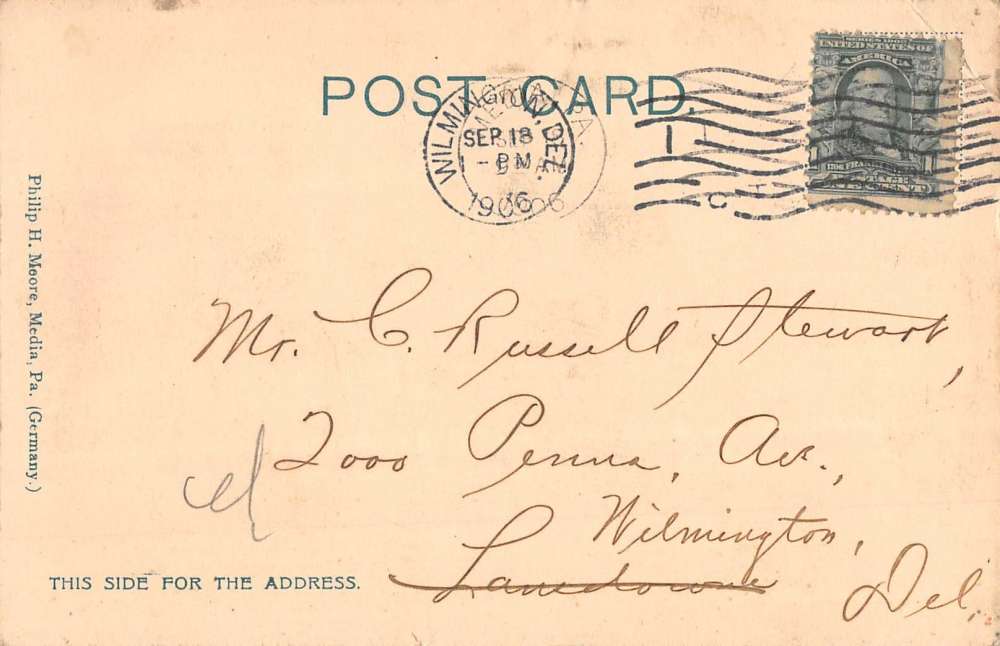 POST CARD.
WILMINGTON, DEL.
SEP 18
- PM
1906
SERIES 1902
UNITED STATES OF
AMERICA
1
FRANKLIN
ONE CENT
Mr. C. Russell Stewart,
2000 Penna. Av.,
Wilmington,
Lansdowne
Del.
THIS SIDE FOR THE ADDRESS.
Philip H. Moore, Media, Pa. (Germany.)